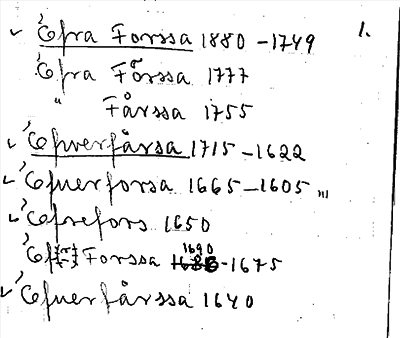 ✓ Öfra Forssa 1880 – 1749 1.
Öfra Förssa 1777
" Fårssa 1755
✓ Öfwerfårsa 1715 – 1622
✓ Öfuerforsa 1665 – 1605 "'
✓ Öfrefors 1650
Öf[r] Forssa 1690 - 1675
✓ Öfuerfårssa 1640